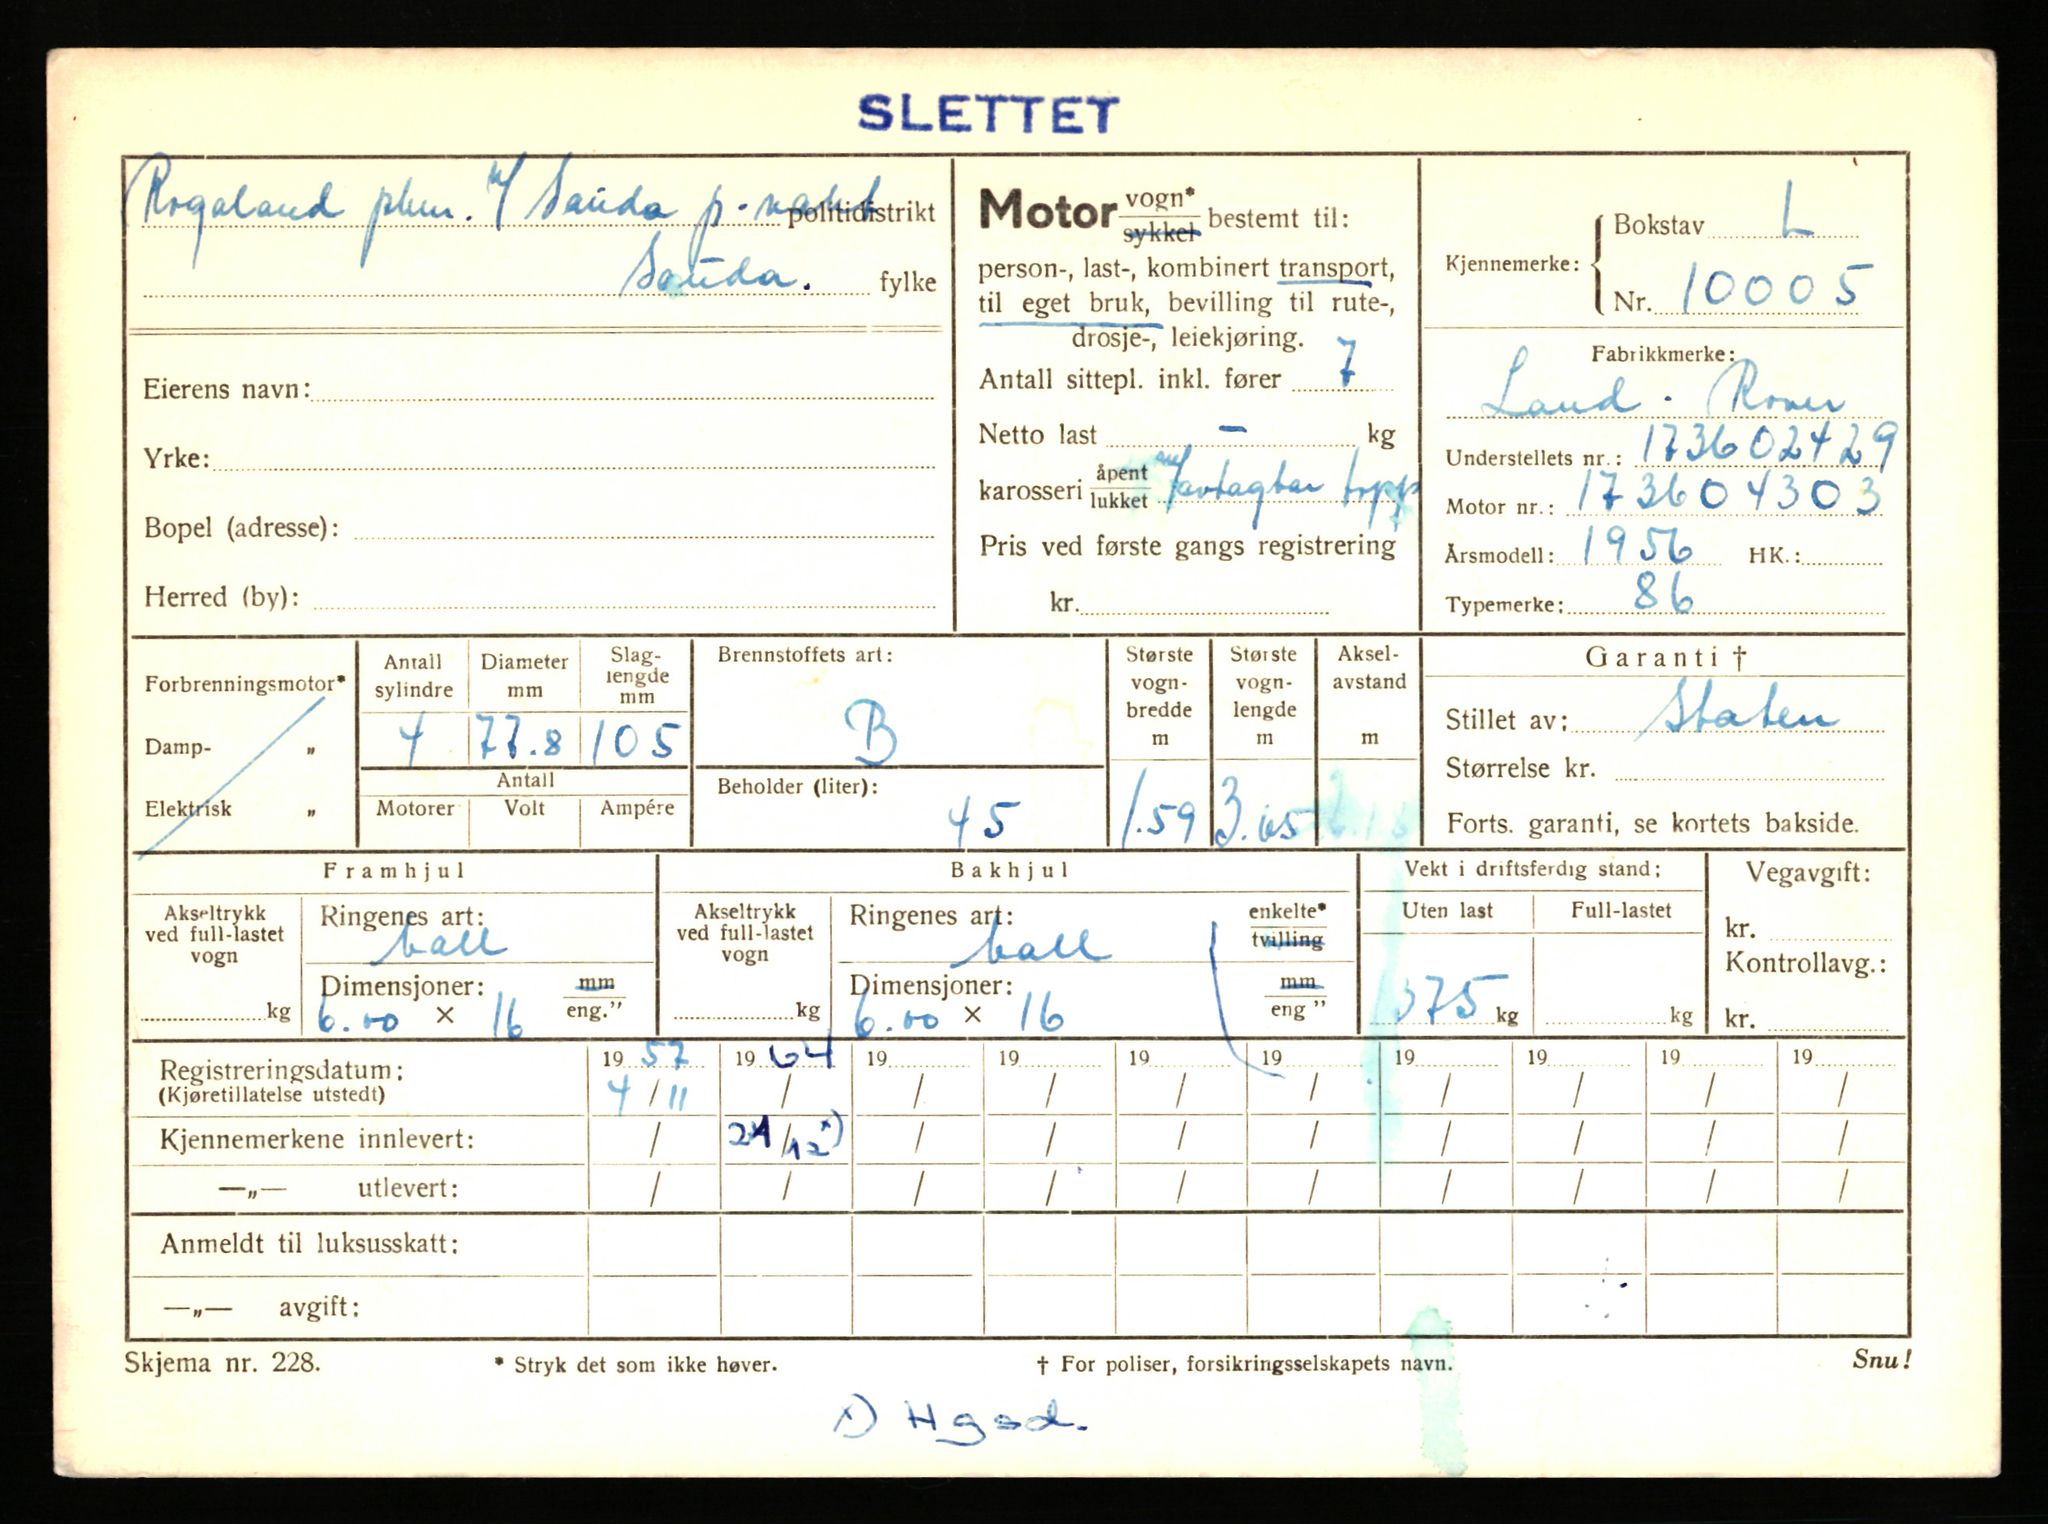 SLETTET
Rogaland pkm. v/ Sauda p.vakt politidistrikt
Sauda. fylke
Eierens navn:
Yrke:
Bopel (adresse):
Herred (by):
Motor vogn* sykkel bestemt til:
person-, last-, kombinert transport,
til eget bruk, bevilling til rute-,
drosje-, leiekjøring.
Antall sittepl. inkl. fører 7
Netto last - kg
karosseri åpent lukket avtagbar topp
Pris ved første gangs registrering
kr.
Kjennemerke: Bokstav L
Nr. 10005
Fabrikkmerke:
Land-Rover
Understellets nr.: 173602429
Motor nr.: 173604303
Årsmodell: 1956 HK.:
Typemerke: 86
Forbrenningsmotor*
Damp- „
Elektrisk „
Antall sylindre 4
Diameter mm 77.8
Slaglengde mm 105
Antall
Motorer Volt Ampére
Brennstoffets art:
B
Beholder (liter):
45
Største vognbredde m 1.59
Største vognlengde m 3.65
Akselavstand m
Garanti †
Stillet av: Staten
Størrelse kr.
Forts. garanti, se kortets bakside.
Framhjul
Akseltrykk ved full-lastet vogn kg
Ringenes art: ball
Dimensjoner: mm eng."
6.00 × 16
Bakhjul
Akseltrykk ved full-lastet vogn kg
Ringenes art: ball enkelte* tvilling
Dimensjoner: mm eng"
6.00 × 16
Vekt i driftsferdig stand:
Uten last Full-lastet
1375 kg kg
Vegavgift:
kr.
Kontrollavg.:
kr.
Registreringsdatum: 1957 1964 19 19 19 19 19 19 19 19
(Kjøretillatelse utstedt) 4/11 / / / / / / / / /
Kjennemerkene innlevert: / 24/12 x) / / / / / / / /
—„— utlevert: / / / / / / / / / /
Anmeldt til luksusskatt:
—„— avgift:
Skjema nr. 228. * Stryk det som ikke høver. † For poliser, forsikringsselskapets navn. Snu!
x) Hgsd.